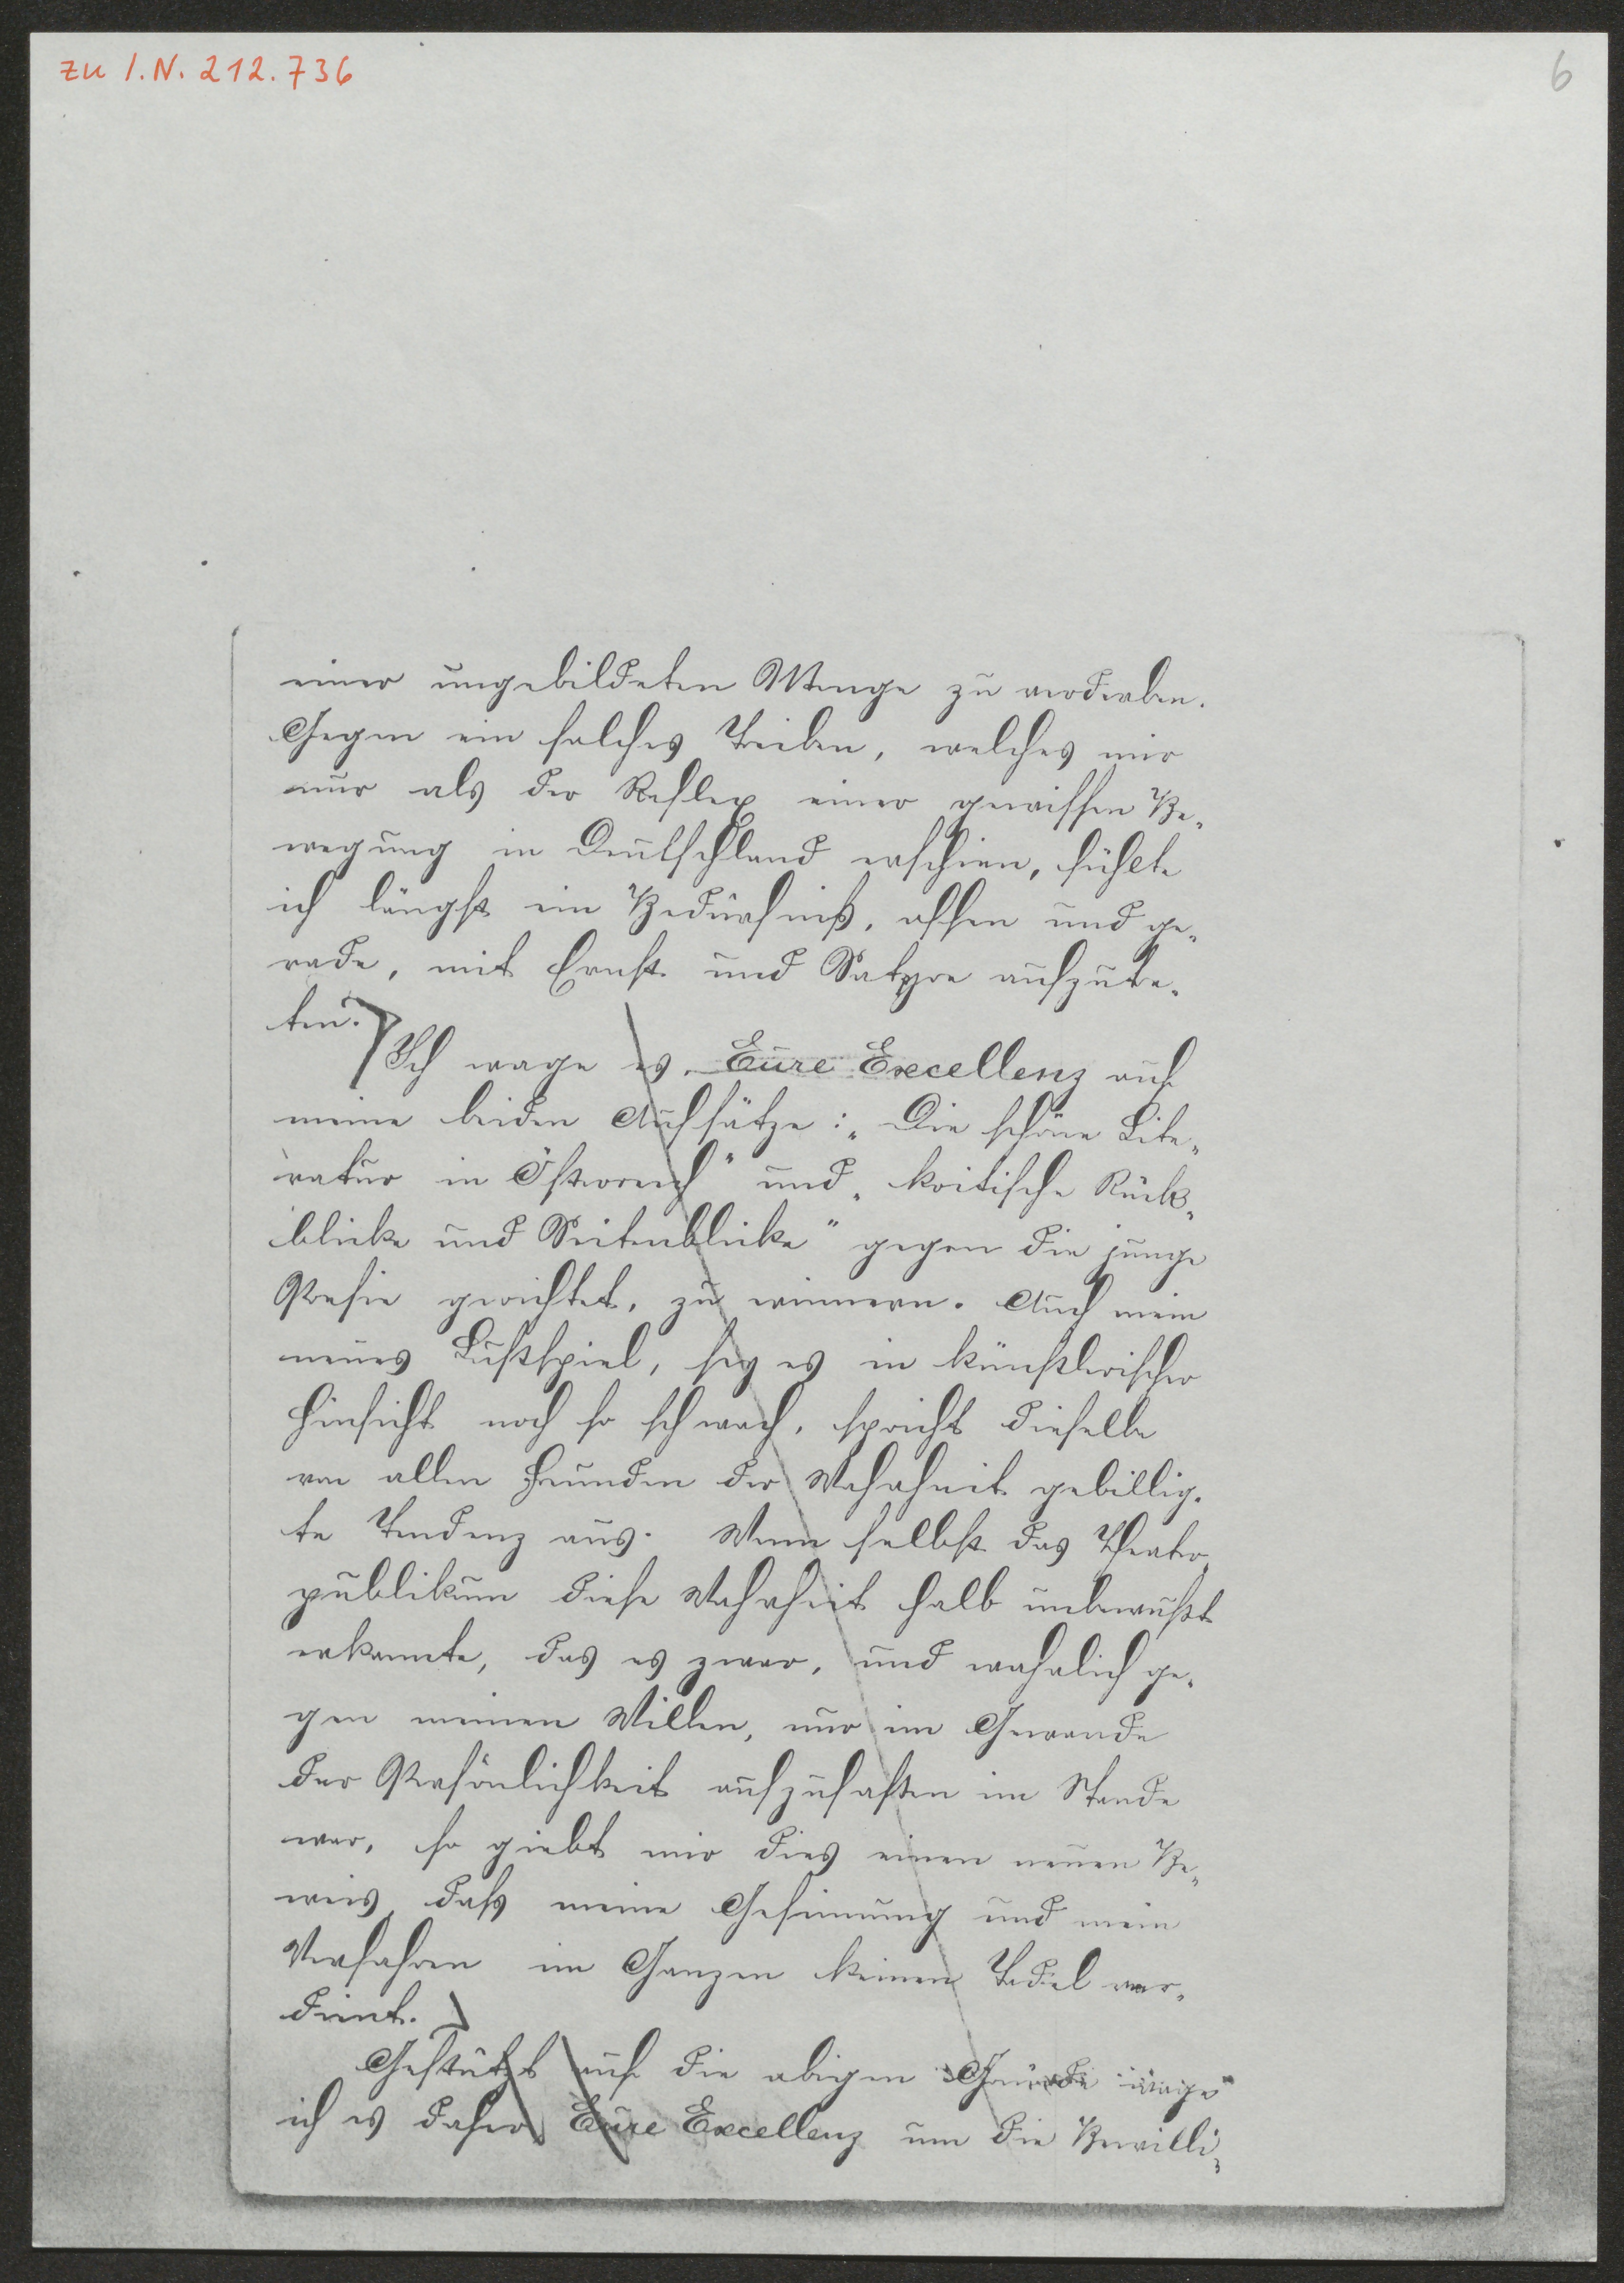 zu I.N. 212.736
6
einer ungebildeten Menge zu verderben.
Gegen ein solches Treiben, welches mir
nur als der Reflex einer gewissen Be-
wegung in Deutschland erschien, fühlte
ich längst ein Bedürfniß, offen und ge-
rade, mit Ernst und Satyre aufzutre-
ten.
Ich wage es, Eure Excellenz auf
meine beiden Aufsätze: „Die schöne Lite-
ratur in Östreich" und „kritische Rück-
blicke und Seitenblicke" gegen die junge
Poesie gerichtet, zu erinnern. Auch mein
neues Lustspiel, sey es in künstlerischer
Hinsicht noch so schwach, spricht dieselbe
von allen Freunden der Wahrheit gebillig-
te Tendenz aus. Wenn selbst das Theater-
publikum diese Wahrheit halb unbewußt
erkannte, das es zwar, und wahrlich ge-
gen meinen Willen, nur im Gewande
der Persönlichkeit aufzufassen im Stande
war, so giebt mir dies einen neuen Be-
weis, daß meine Gesinnung und mein
Verfahren im Ganzen keinen Tadel ver-
dient.
Gestützt auf die obigen Gründe wage
ich es daher, Eure Excellenz um die Bewilli-